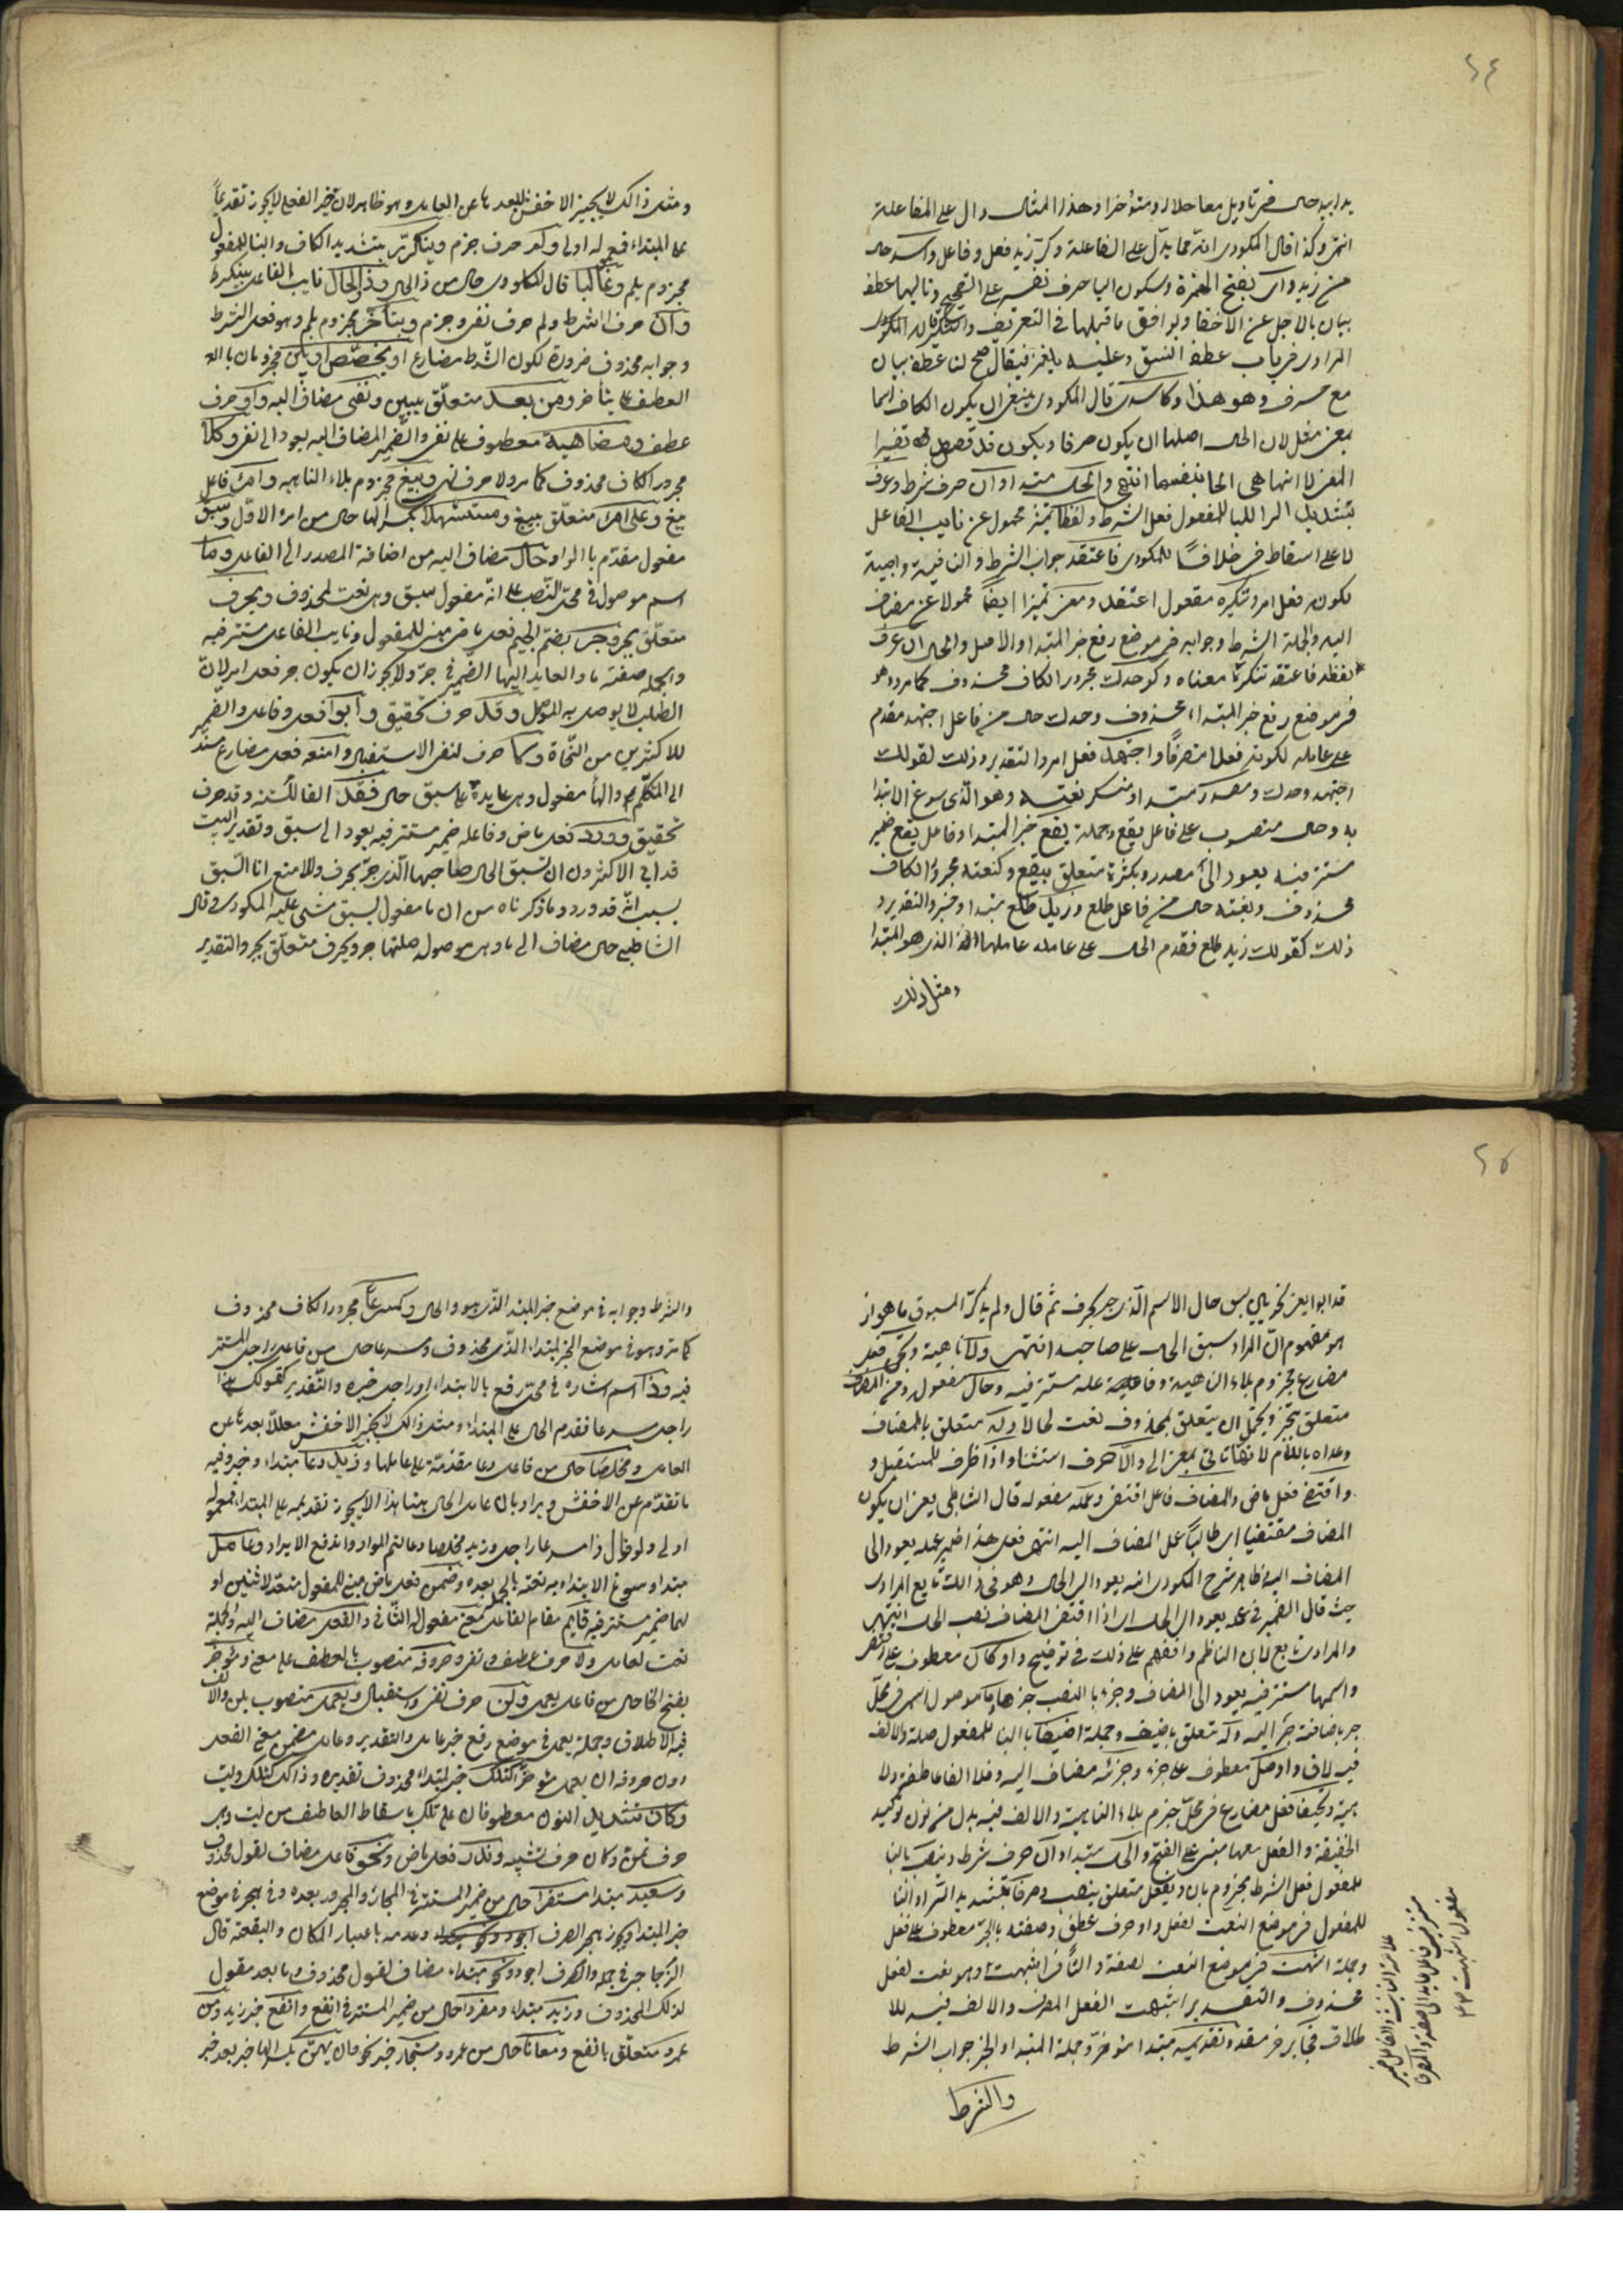 ٦٤
بدا بيد حال في تاويل معا حلال ومتؤخرا وهذا المثال دال على المفاعلة
انتهى وكذا قال المكودى انه مما يدل على المفاعلة وكر زيد فعل وفاعل واسد حال
من زيد واى بفتح الهمزة وسكون اليا حرف تفسير على الصحيح وتاليها عطف
بيان بالاجل عن الاخفا ويوافق ما قبلها في التعريف والتنكير قاله المكودى
المرادى في باب عطف النسق وعليه يلغز فيقال صح لنا عطف بيان
مع حرف وهو هذا وكاسد قال المكودى ينبغى ان يكون الكاف اسما
بمعنى مثل لان الحال اصلها ان يكون صرفا ويكون قد قصد تفسير
المعنى لا انها هى الحال بنفسها انتهى والحال مبتدا وان حرف شرط وعرف
بتشديد الرا للبنا للمفعول فعل الشرط ولفظا تمييز محمول عن نايب الفاعل
لا على اسقاط فى خلافا للمكودى فاعتقد جواب الشرط والفا فيه واجبة
لكونه فعل امر وتنكيره مفعول اعتقد ومعنى تميزا ايضا محمولا عن مضاف
اليه والجملة الشرط وجوابه فى موضع رفع خبر المبتدا والاصل والحال ان عرف
لفظه فاعتقد تنكير معناه وكوحدك مجرور الكاف محذوف كما مر وهو
فى موضع رفع خبر المبتداء محذوف وحدك حال من فاعل اجتهد مقدم
على عامله لكونه فعلا متصرفا واجتهد فعل امر والتقدير وذلك كقولك
اجتهد وحدك ومصدر مبتدا ومنكر نعته وهو الذى سوغ الابتدا
به وحال منصوب على فاعل يقع وجملة يقع خبر المبتدا وفاعل يقع ضمير
مستتر فيه يعود الى مصدر وبكثرة متعلق بيقع وكبغتة مجرور الكاف
محذوف وبغتة حال من فاعل طلع وزيد طلع مبتدا وخبر والتقدير و
ذلك كقولك زيد طلع فقدم الحال على عامله عاملها الذى هو المبتدا
ومثل ذلك
ومثل ذالك لا يجيز الاخفش لبعدها عن العامل وهو ظاهر لان خبر الفعلى لا يجوز تقديما
على المبتداء فمعموله اولى ولم حرف جزم وينكر بتشديد الكاف والبنا للمفعول
مجزوم بلم وغالبا قال المكودى حال من ذا الحال وذو الحال نايب الفاعل بينكر
وان حرف الشرط ولم حرف نفى وجزم ويتاخر مجزوم بلم وهو فعل الشرط
وجوابه محذوف ضرورة لكون الشرط مضارع او يخصص او يبن مجزومان بالا
لعطف على يتأخر ومن بعد متعلق بيبين ونفى مضاف اليه واو حرف
عطف ومضاهيه معطوف على نفى والضمير المضاف اليه يعود الى نفى وكلا
مجرور الكاف محذوف كما مر ولا حرف نهى ويبغ مجزوم بلاء الناهيه وامرؤ فاعل
يبغ وعلى امرئ متعلق بيبغ ومستسهلا بكسر الها حال من امرؤ الاول وسبق
مفعول مقدم بابوا وحال مضاف اليه من اضافة المصدر الى الفاعل وما
اسم موصول فى محل النصب على انه مفعول سبق وهى نعت لمحذوف وبحرف
متعلق بجر وجر بضم الجيم فعل ماض مبنى للمفعول ونايب الفاعل مستتر فيه
والجمله صفته ما والعايد اليها الضمير فى جر ولا يجوز ان يكون جر فعل امر لان
الطلب لا يوصل به الموصول وقد حرف تحقيق وأبوا فعل وفاعل والضمير
للاكثرين من النحاة ولا حرف لنفى الاستقبال وامنعه فعل مضارع مسند
الى المتكلم والهأ مفعول وهى عايدة على سبق حال فقد الفا للسببيه وقد حرف
تحقيق وورد فعل ماض وفاعله ضمير مستتر فيه يعود الى سبق وتقدير البيت
قد ابى الاكثرون ان تسبق الحال صاحبها الذى جر بحرف ولا امنع انا السبق
بسبب انه قد ورد وما ذكرناه من ان ما مفعول لسبق مشى عليه المكودى وقال
الشاطبى حال مضاف الى ما وهى موصول صلتها جر وبحرف متعلق بجر والتقدير
٦٥
قد ابوا يعنى نحويى سبق حال الاسم الذى جر بحرف ثم قال ولم يذكر المسبوق ما هو اذ
هو مفهوم ان المراد سبق الحال على صاحبه انتهى ولا ناهية وتجز فعل
مضارع مجزوم بلاء الناهية وفاعله مستتر فيه وحالا مفعول ومن المضاف
متعلق بتجز ويحتمل ان يتعلق بمحذوف نعت لحالا وله متعلق بالمضاف
وعداه باللام لانها تاتى بمعنى الى والا حرف استثناء واذا ظرف للمستقبل و
واقتضى فعل ماض والمضاف فاعل اقتضى وعمله مفعوله قال الشاطبى يعنى ان يكون
المضاف مقتضيا اى طالبا عمل المضاف اليه انتهى فعلى هذا ضمير عمله يعود الى
المضاف اليه وظاهر شرح المكودى انه يعود الى الحال وهو فى ذالك تابع المرادى
حيث قال الضمير فى عمله يعود الى الحال اى اذا اقتضى المضاف نصب الحال انتهى
والمرادى تابع لابن الناظم وافقهم على ذلك فى توضيح واو كان معطوف على اقتضى
واسمها مستتر فيه يعود الى المضاف وجزء بالنصب خبرها وما موصول اسمى فى محل
جر باضافة جزء اليه وله متعلق باضيف وجملة اضيفا بالبنا للمفعول صلة والالف
فيه لاق واو مثل معطوف على جزء وجزئه مضاف اليه وفلا الفا عاطفة ولا
هية وتحيفا فعل مضارع فى محل جزم بلاء الناهية والالف فيه بدل من نون توكيد
الخفيفة والفعل معها مبنى على الفتح والحال مبتدا وان حرف شرط وينصب بالبنا
للمفعول فعل الشرط مجزوم بان وبفعل متعلق بينصب وصرفا بتشديد الراء والبنا
للمفعول فى موضع النعت لفعل واو حرف عطف وصفة بالجر معطوف على فعل
وجملة اشبهت فى موضع النعت لصفة والتأ فى اشبهت وهو نعت لفعل
محذوف والتقدير اشبهت الفعل المصرف والالف فيه للا
طلاق فجايز خبر مقدم وتقديمه مبتدا مؤخر وجملة المبتدا والخبر جواب الشرط
علامة التانيث والفاعل ضمير
مستتر فيه فاعل عايد الى صفة والمصرفا
مفعول اشبهت
والشرط
والشرط وجوابه فى موضع خبر المبتدا الذى هو والحال وكمسرعا مجرور الكاف محذوف
كما مر وهو فى موضع الخبر لمبتداء الذى محذوف ومسرعا حال من فاعل راحل المستتر
فيه وذا اسم اشاره فى محل رفع بالابتداء وراحل خبره والتقدير كقولك هذا
راحل مسرعا فقدم الحال على المبتداء ومثل ذالك لا يجيز الاخفش معللا بعدها عن
العامل ومخلصا حال من فاعل دعا مقدمة على عاملها وزيد دعا مبتداء وخبر وفيه
ما تقدم عن الاخفش ويراد بان عامل الحال هنا هذا لا يجوز تقديمه على المبتداء فمعموله
اولى ولو قال ذا مسرعا راحل وزيد مخلصا دعا لتم المراد واندفع الايراد وعامل
مبتداء وسوغ الابتداء به نعته بالجملة بعده وضمن فعل ماض مبنى للمفعول متعد لاثنين او
لهما ضمير مستتر فيه قايم مقام الفاعل ومعنى مفعول الثانى والفعل مضاف اليه والجملة
نعت لعامل ولا حرف عطف ونفى وحروفه منصوب بالعطف على معنى ومؤخرا
بفتح الخا حال من فاعل يعمل ولن حرف نفى واستقبال ويعمل منصوب بلن والالف
فيه الاطلاق وجملة يعمل فى موضع رفع خبر عامل والتقدير وعامل مضمن معنى الفعل
دون حروفه ان يعمل مؤخرا كتلك خبر لمبتداء محذوف تقديره وذالك كتلك وليت
وكان بتشديد النون معطوفان على تلك باسقاط العاطف من ليت وهى
حرف تمن وكان حرف تشبيه وندر فعل ماض ونحو فاعل مضاف لقول محذوف
وسعيد مبتدا مستقرا حال من ضمير المستتر فى المجار والمجرور بعده وفى هجر فى موضع
خبر المبتدا ويجوز بهجر الصرف وعدمه باعتبار المكان والبقعة قال
الزجاجى فى جمله والصرف اجود ونحو مبتداء مضاف لقول محذوف وما بعد مقول
لذلك المحذوف وزيد مبتداء ومفردا حال من ضمير المستتر فى انفع وانفع خبر زيد ومن
عمرو متعلق بانفع ومعانا حال من عمرو ومستجاز خبر نحو ولن يهن بكسر الها خبر بعد خبر